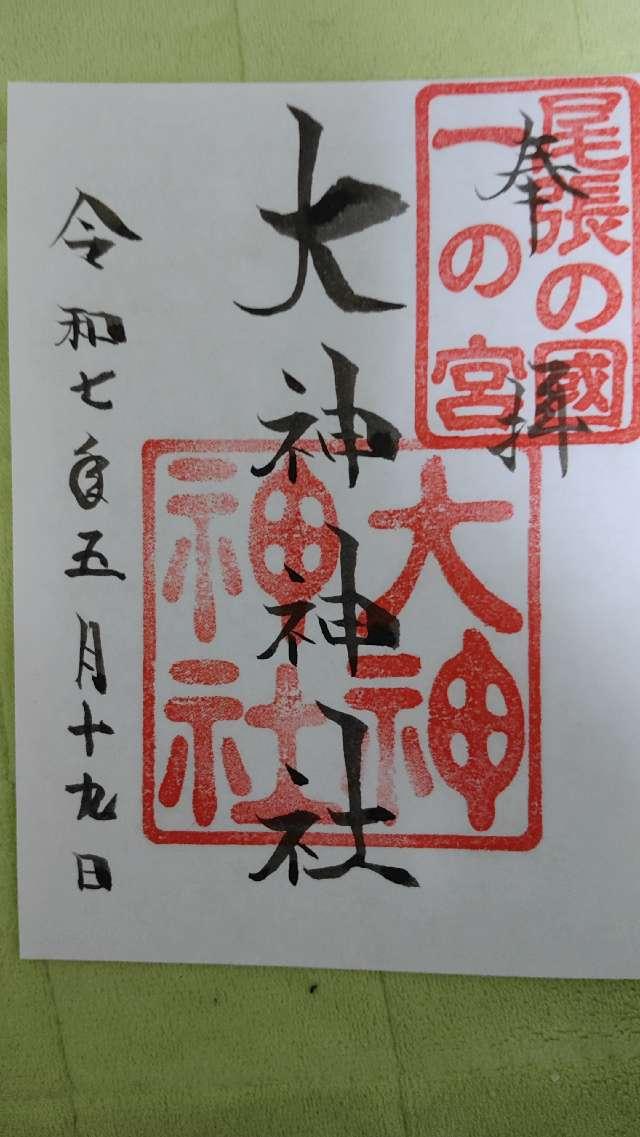 奉拝
尾張の國
一の宮
大神神社
大神
神社
令和七年五月十九日